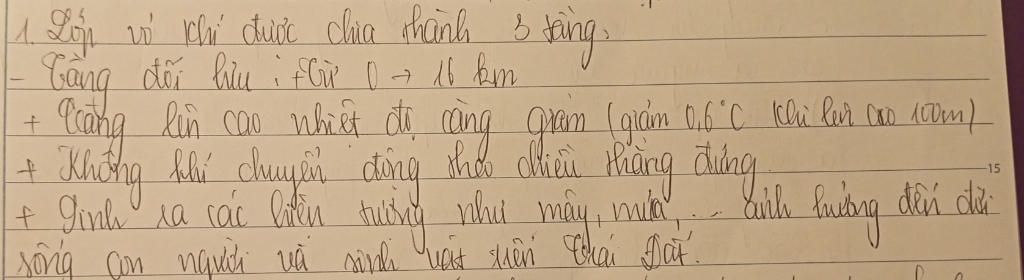 1. Lớp vỏ khí được chia thành 3 tầng.
- Tầng đối lưu: từ 0 → 16 km
+ Càng lên cao nhiệt độ càng giảm (giảm 0,6°C khi lên cao 100m)
+ Không khí chuyển động theo chiều thẳng đứng
15
+ Sinh ra các hiện tượng như mây, mưa,... ảnh hưởng đến đời
sống con người và sinh vật trên Trái Đất.